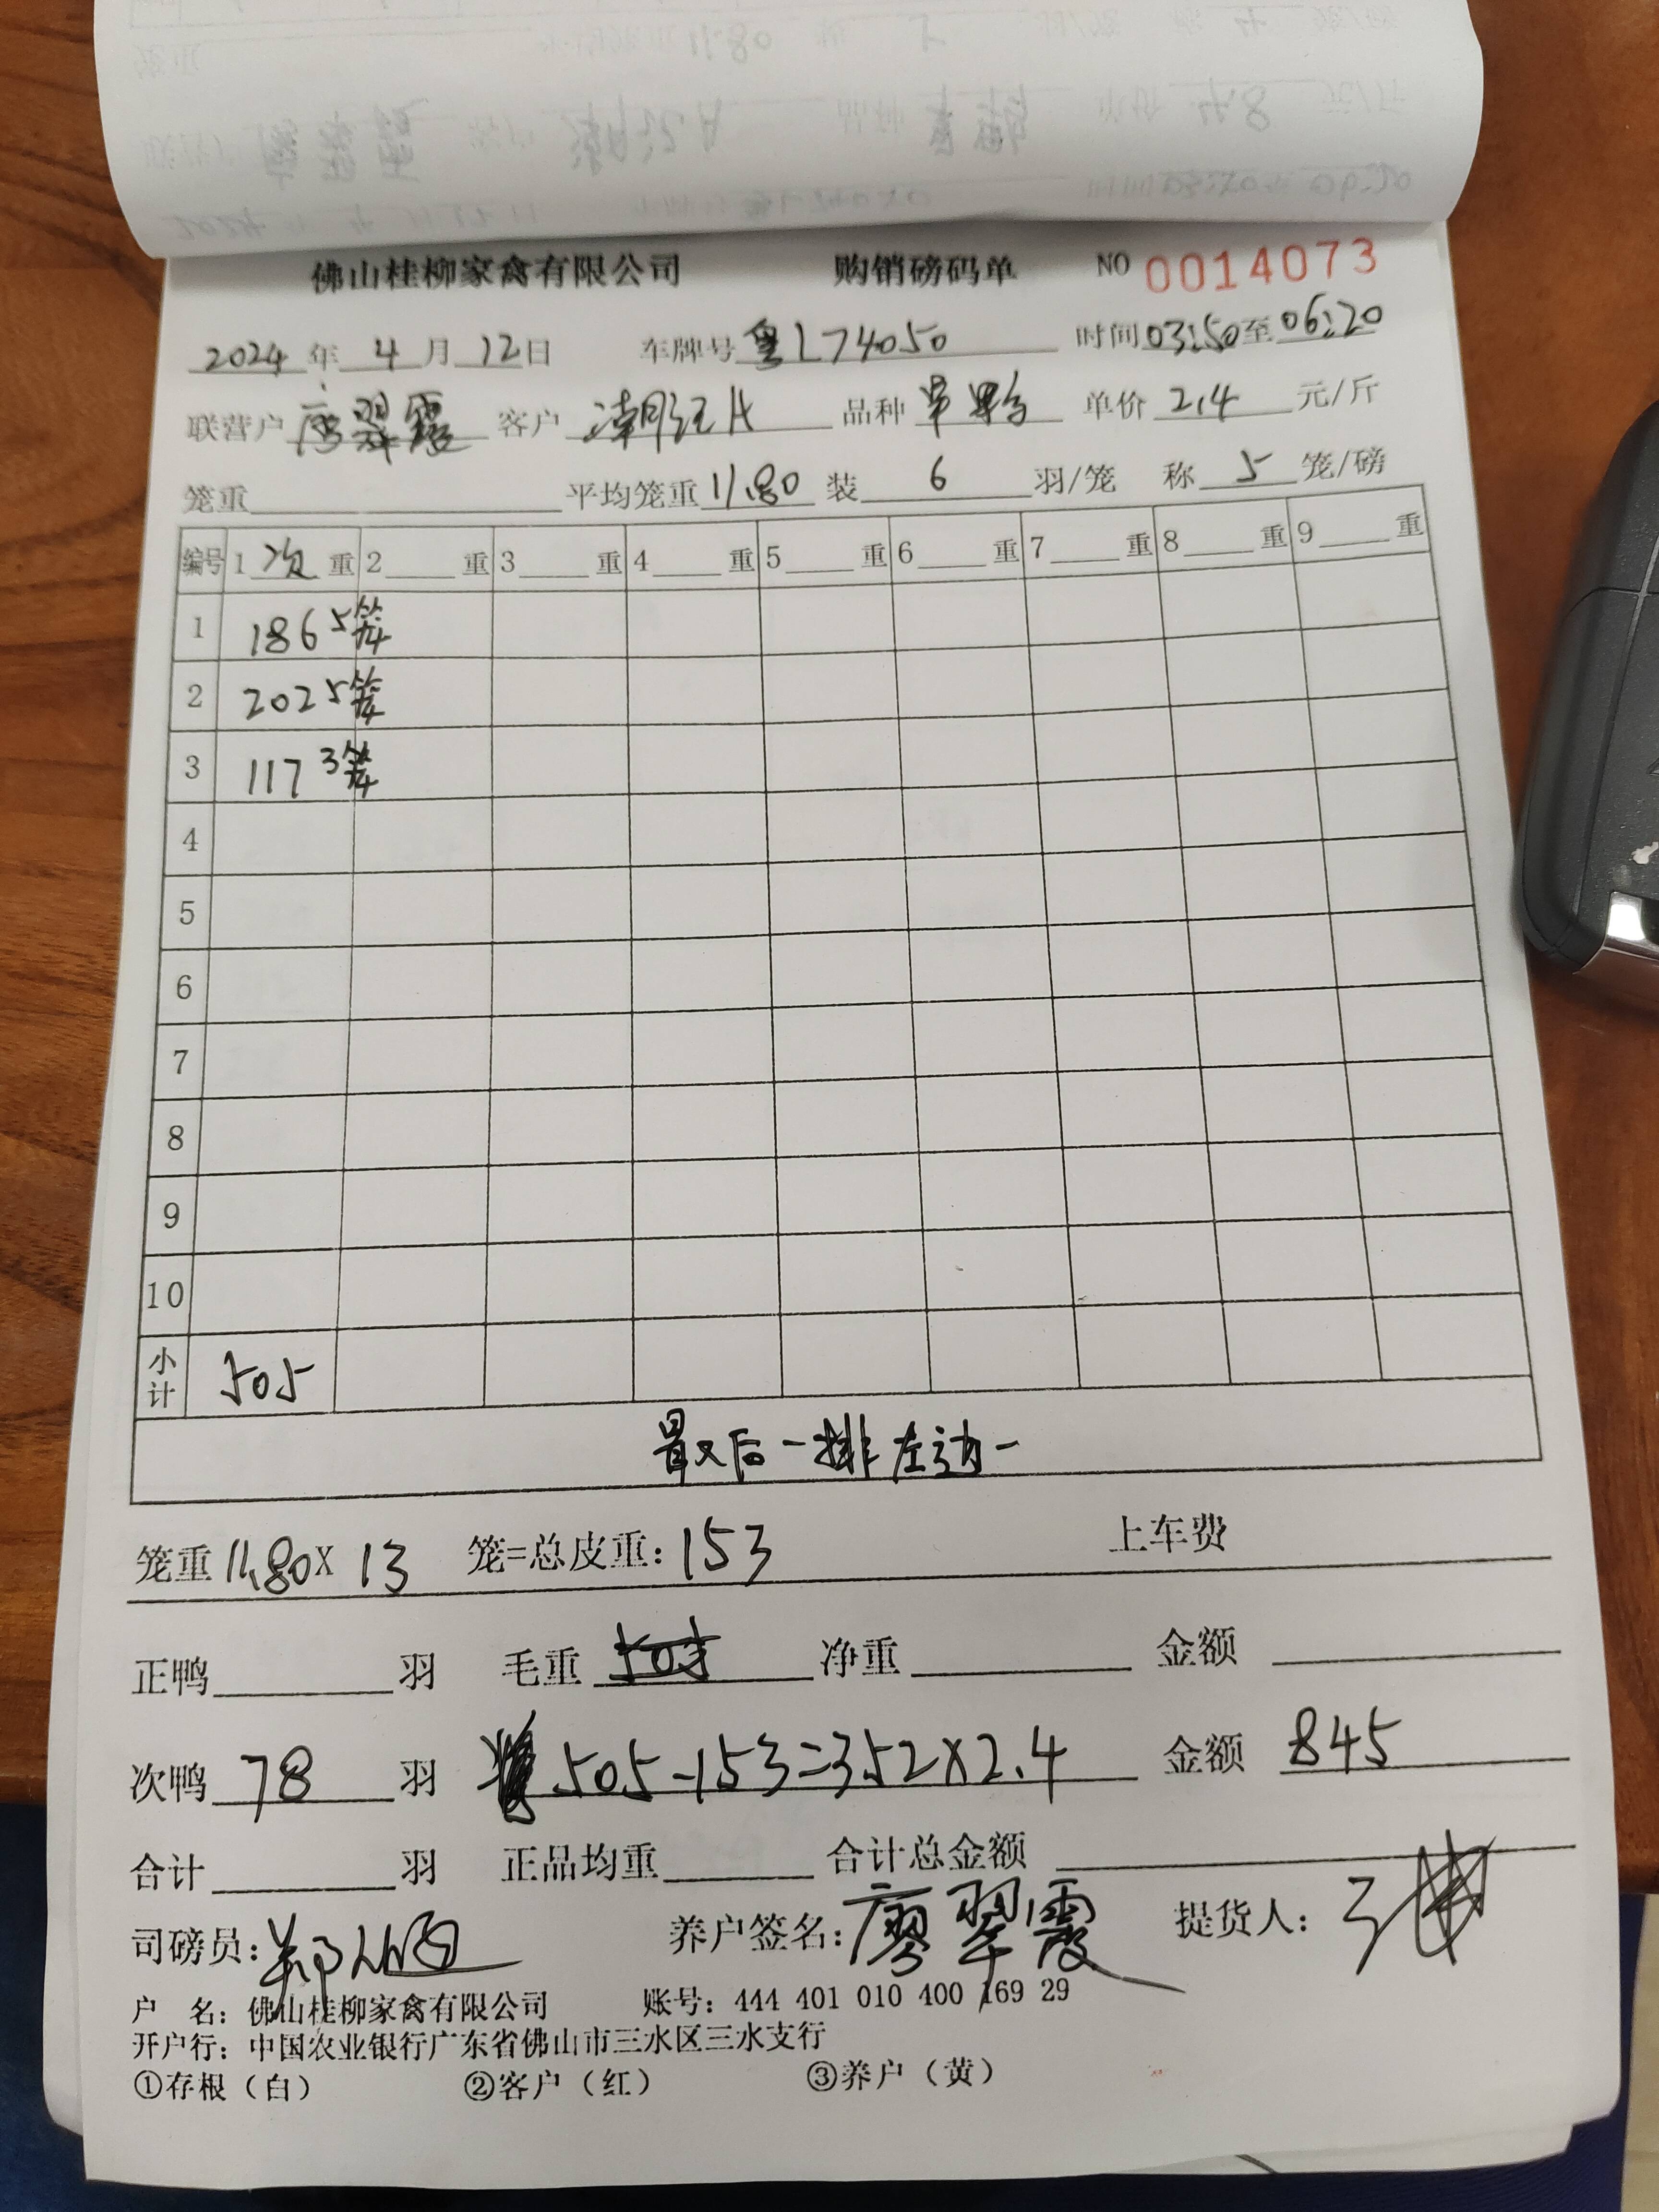 佛山桂柳家禽有限公司 购销磅码单 NO 0014073
2024年 4月 12日 车牌号 粤L74050 时间 03:50至 06:20
联营户 廖翠霞 客户 潮江A 品种 单价 2.4 元/斤
笼重 平均笼重 11.80 装 6 羽/笼 称 5 笼/磅
编号 1 次 重 2 重 3 重 4 重 5 重 6 重 7 重 8 重 9 重
1 186 5笼
2 202 5笼
3 117 3笼
4
5
6
7
8
9
10
小计 505
最后一排左边一
笼重 11.80 X 13 笼=总皮重: 153 上车费
正鸭 羽 毛重 净重 金额
次鸭 78 羽 505-153=352×2.4 金额 845
合计 羽 正品均重 合计总金额
司磅员: 养户签名: 廖翠霞 提货人:
户 名: 佛山桂柳家禽有限公司 账号: 444 401 010 400 169 29
开户行: 中国农业银行广东省佛山市三水区三水支行
①存根（白） ②客户（红） ③养户（黄）